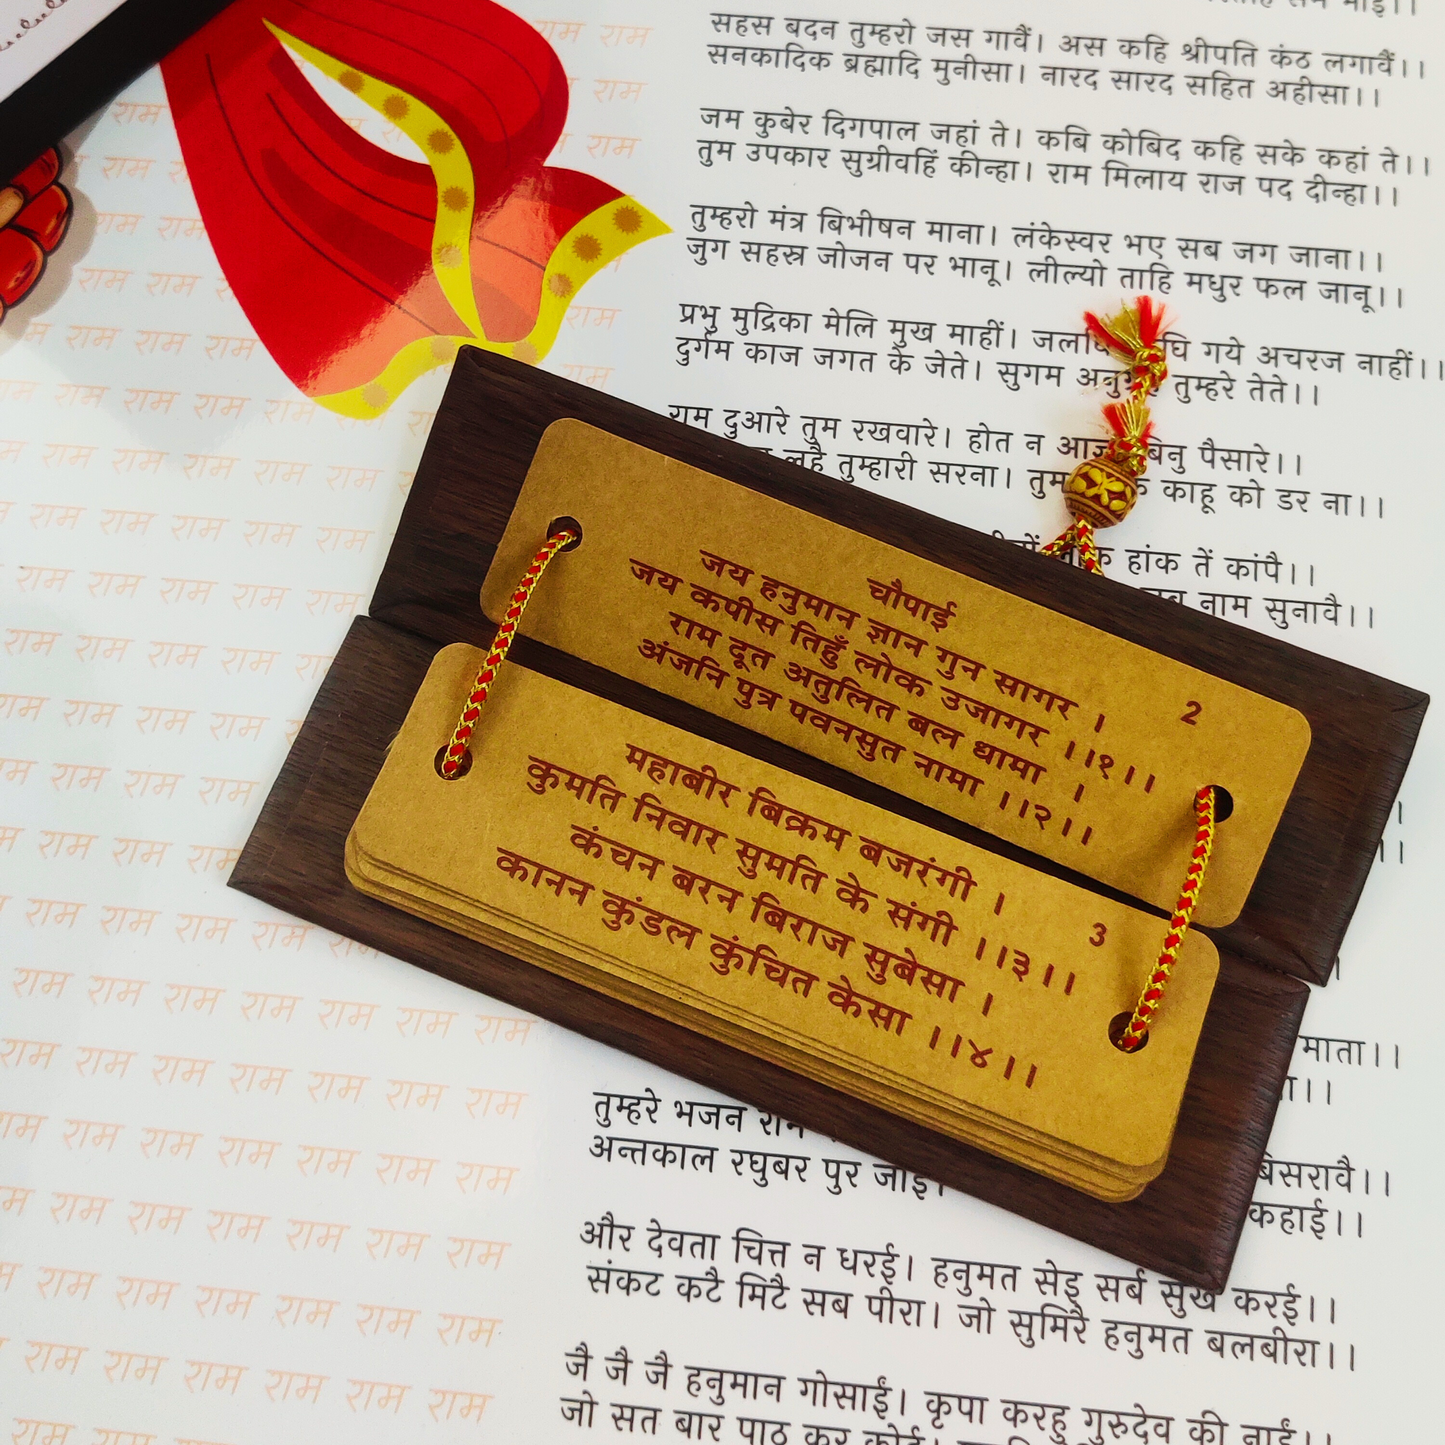 सहस बदन तुम्हरो जस गावैं। अस कहि श्रीपति कंठ लगावैं।।
सनकादिक ब्रह्मादि मुनीसा। नारद सारद सहित अहीसा।।
जम कुबेर दिगपाल जहां ते। कबि कोबिद कहि सके कहां ते।।
तुम उपकार सुग्रीवहिं कीन्हा। राम मिलाय राज पद दीन्हा।।
तुम्हरो मंत्र बिभीषन माना। लंकेस्वर भए सब जग जाना।।
जुग सहस्र जोजन पर भानू। लील्यो ताहि मधुर फल जानू।।
प्रभु मुद्रिका मेलि मुख माहीं। गये अचरज नाहीं।।
दुर्गम काज जगत के जेते। सुगम तुम्हरे तेते।।
राम दुआरे तुम रखवारे। होत न बिनु पैसारे।।
लहै तुम्हारी सरना। तुम काहू को डर ना।।
हांक तें कांपै।।
नाम सुनावै।।
चौपाई
जय हनुमान ज्ञान गुन सागर ।
जय कपीस तिहुँ लोक उजागर ।।१।।
राम दूत अतुलित बल धामा ।
अंजनि पुत्र पवनसुत नामा ।।२।।
2
महाबीर बिक्रम बजरंगी ।
कुमति निवार सुमति के संगी ।।३।।
कंचन बरन बिराज सुबेसा ।
कानन कुंडल कुंचित केसा ।।४।।
3
माता।।
तुम्हरे भजन
बिसरावै।।
अन्तकाल रघुबर पुर जाई।
कहाई।।
और देवता चित्त न धरई। हनुमत सेइ सर्ब सुख करई।।
संकट कटै मिटै सब पीरा। जो सुमिरै हनुमत बलबीरा।।
जै जै जै हनुमान गोसाईं। कृपा करहु गुरुदेव की नाईं।।
जो सत बार पाठ कर कोई।
राम राम
राम
राम
राम राम राम
राम राम राम
राम राम राम राम
राम राम राम राम राम
राम राम राम राम राम
राम राम राम राम
राम राम राम राम
राम राम राम
राम राम राम
राम राम राम राम
राम राम राम राम राम राम राम
राम राम राम राम राम राम
राम राम राम राम राम राम
राम राम राम राम राम राम
राम राम राम राम राम राम
राम राम राम राम राम राम